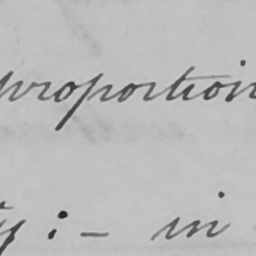 proportion
ty :- in